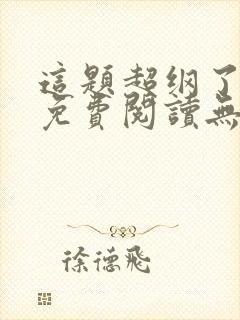 這題超綱了
免費閱讀無
徐德飛